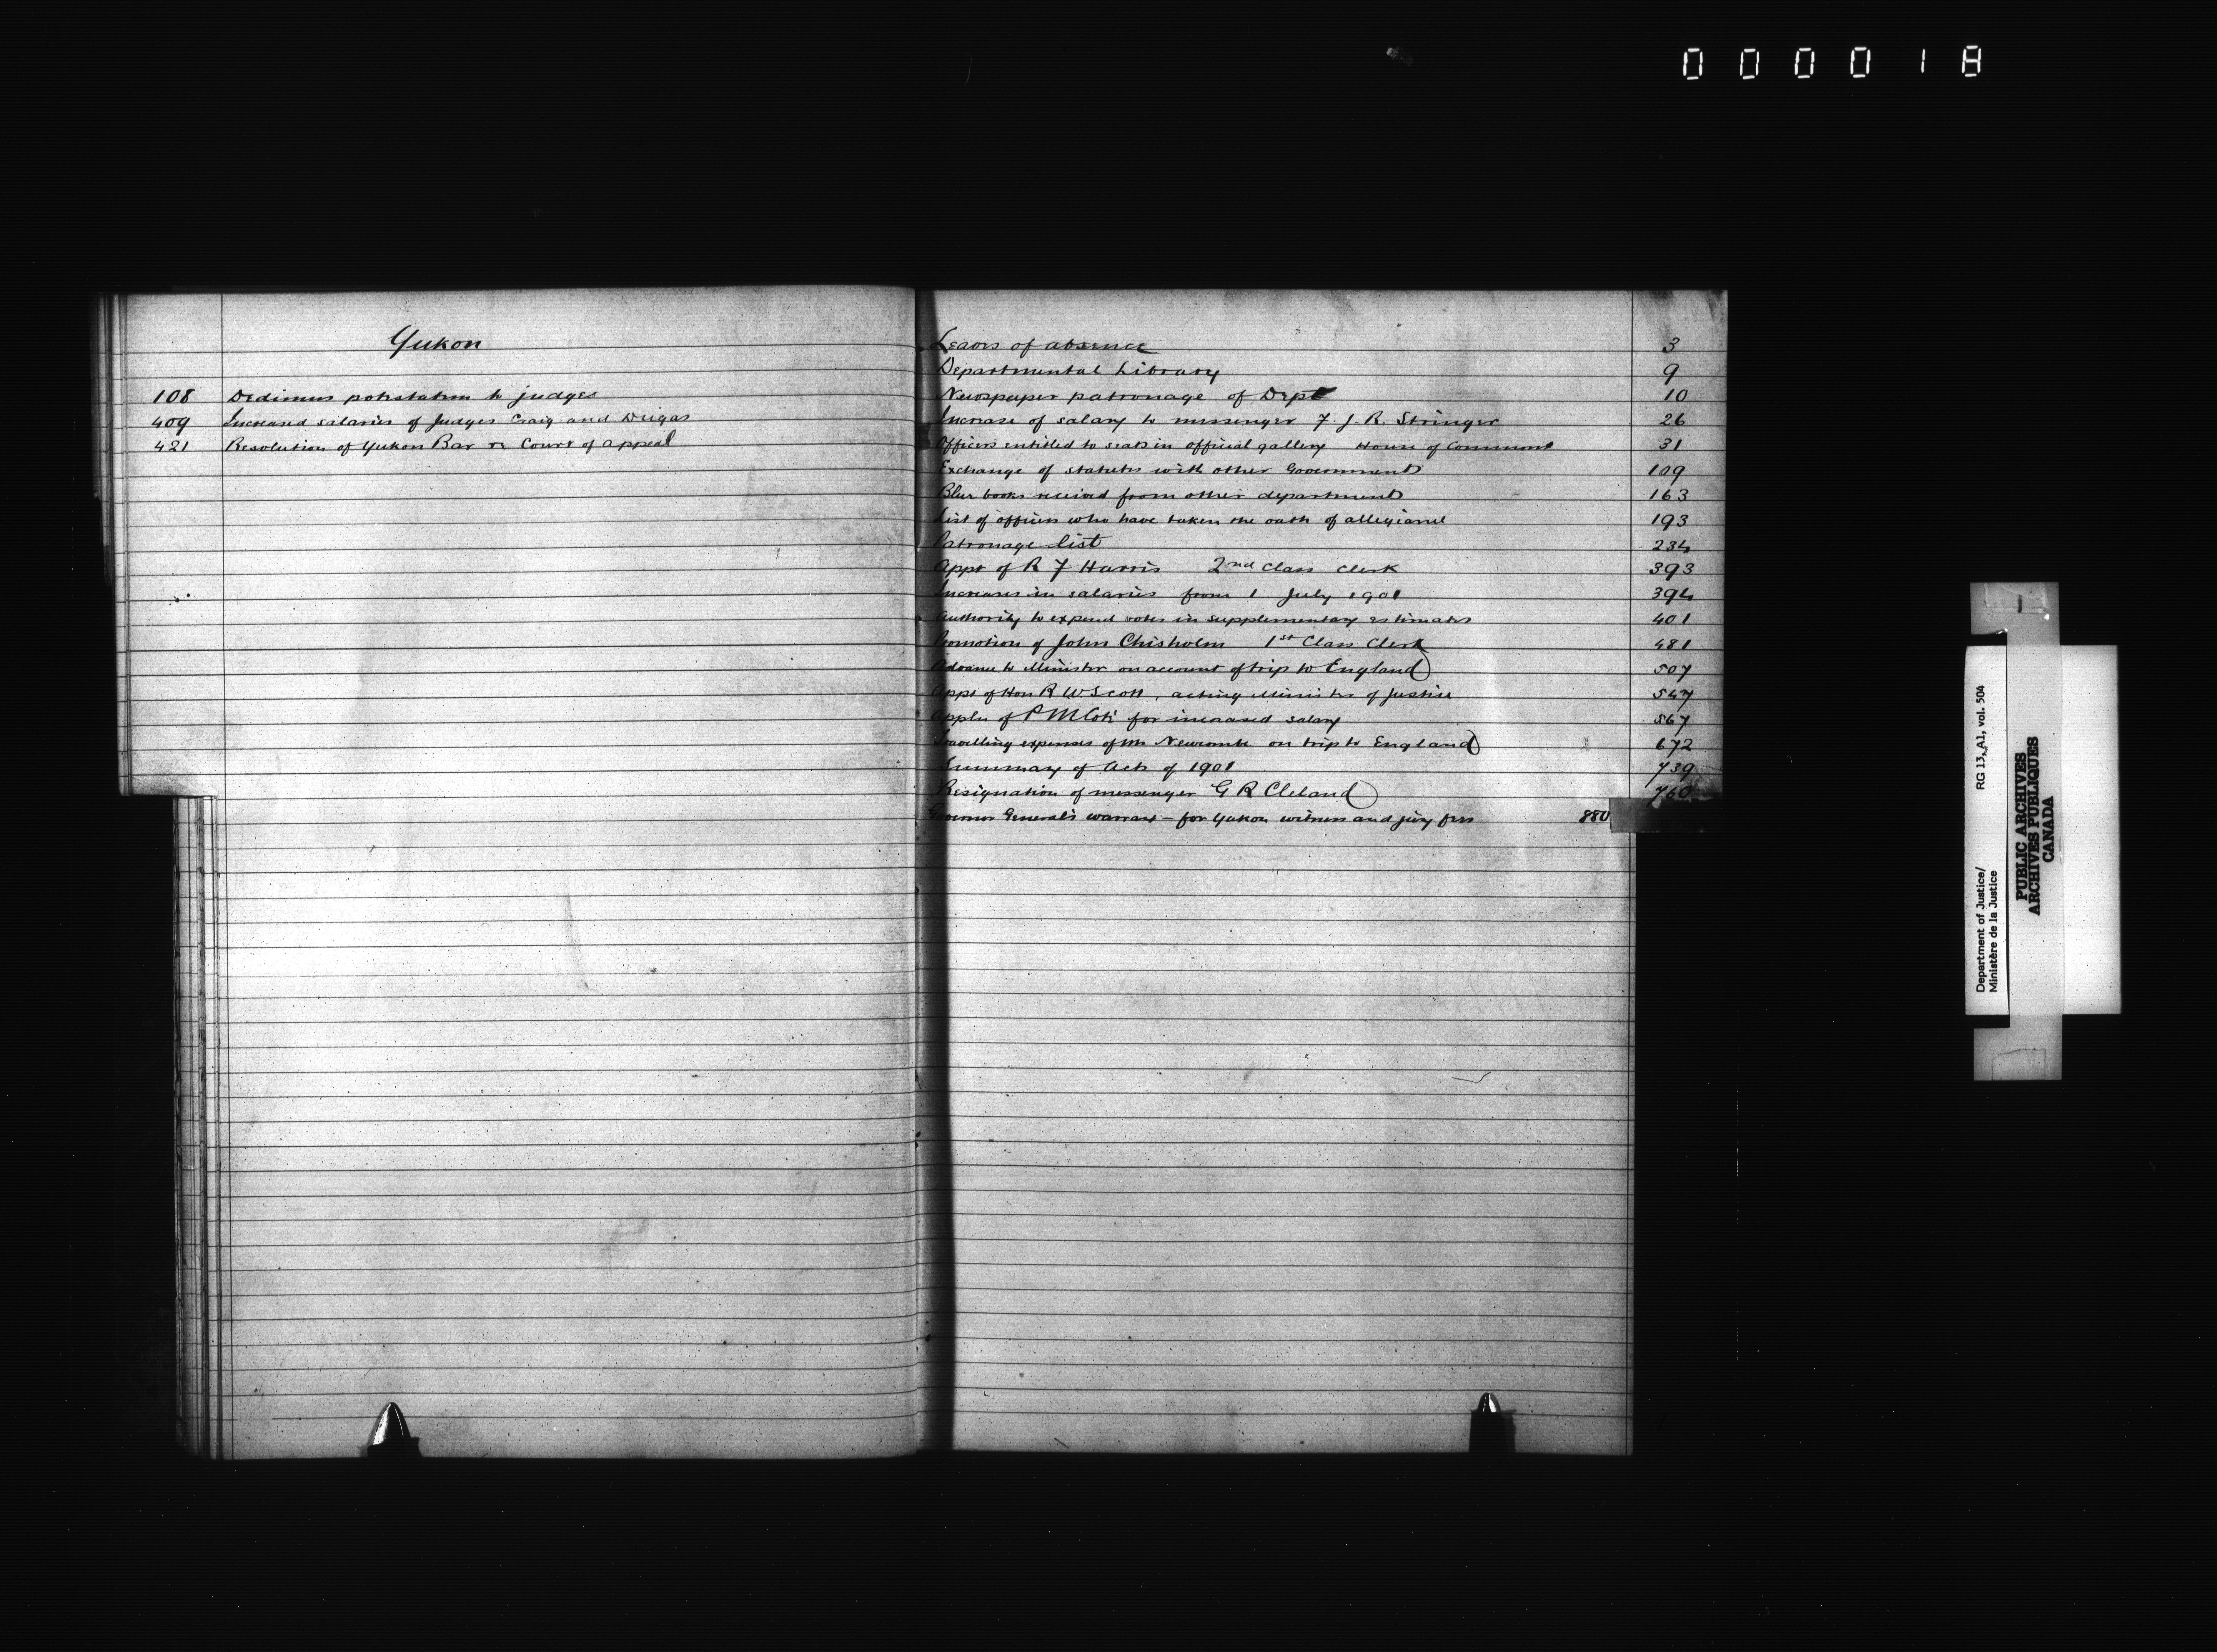 000018
Yukon
108 Dedimus potestatem to judges
409 Increased salaries of Judges Craig and Dugas
421 Resolution of Yukon Bar re Court of appeal
Leave of absence 3
Departmental Library 9
Newspaper patronage of Dept 10
Increase of salary to messenger F. J. R. Stringer 26
Officers entitled to seats in official gallery House of Commons 31
Exchange of statutes with other Governments 109
Blue books received from other departments 163
List of officers who have taken the oath of allegiance 193
Patronage list 234
Appt of R F Harris 2nd Class Clerk 393
Increases in salaries from 1 July 1901 394
Authority to expend votes in supplementary estimates 401
Promotion of John Chisholm 1st Class Clerk 481
Advance to Minister on account of trip to England 507
Appt of Hon R W. Scott, acting Minister of Justice 547
Appln of P M Coté for increased salary 567
Travelling expenses of Mr Newcombe on trip to England 672
Summary of Acts of 1901 739
Resignation of messenger G R Cleland 760
Governor General's warrant - for Yukon witness and jury fees 880
Department of Justice/
Ministère de la Justice
RG 13, A1, vol. 504
PUBLIC ARCHIVES
ARCHIVES PUBLIQUES
CANADA